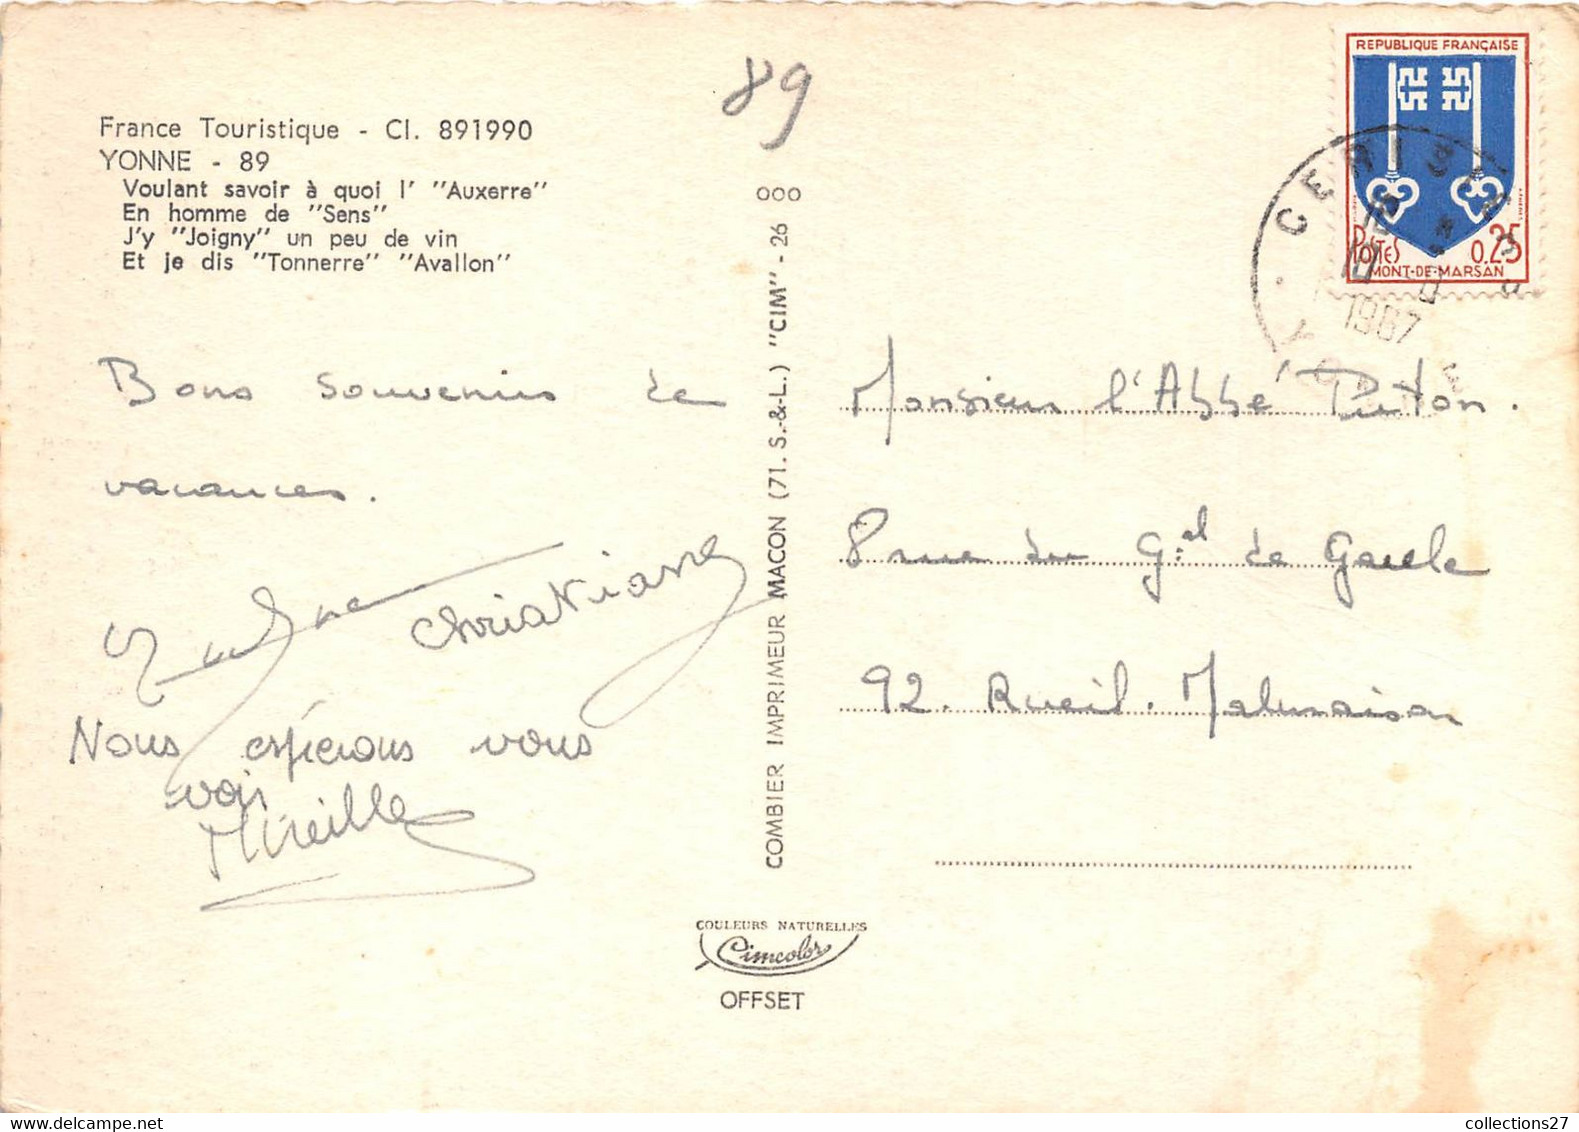 89
REPUBLIQUE FRANÇAISE
POSTES 0.25
MONT-DE-MARSAN
1967
France Touristique - Cl. 891990
YONNE - 89
Voulant savoir à quoi l' "Auxerre"
En homme de "Sens"
J'y "Joigny" un peu de vin
Et je dis "Tonnerre" "Avallon"
Bons souvenirs de
vacances.
Christiane
Nous espérons vous
voir
Mireille
COMBIER IMPRIMEUR MACON (71. S.-&-L.) "CIM" - 26 000
Monsieur l'Abbé Puton.
8 rue du Gal de Gaulle
92. Rueil. Malmaison
COULEURS NATURELLES
Cimcolor
OFFSET
collections27